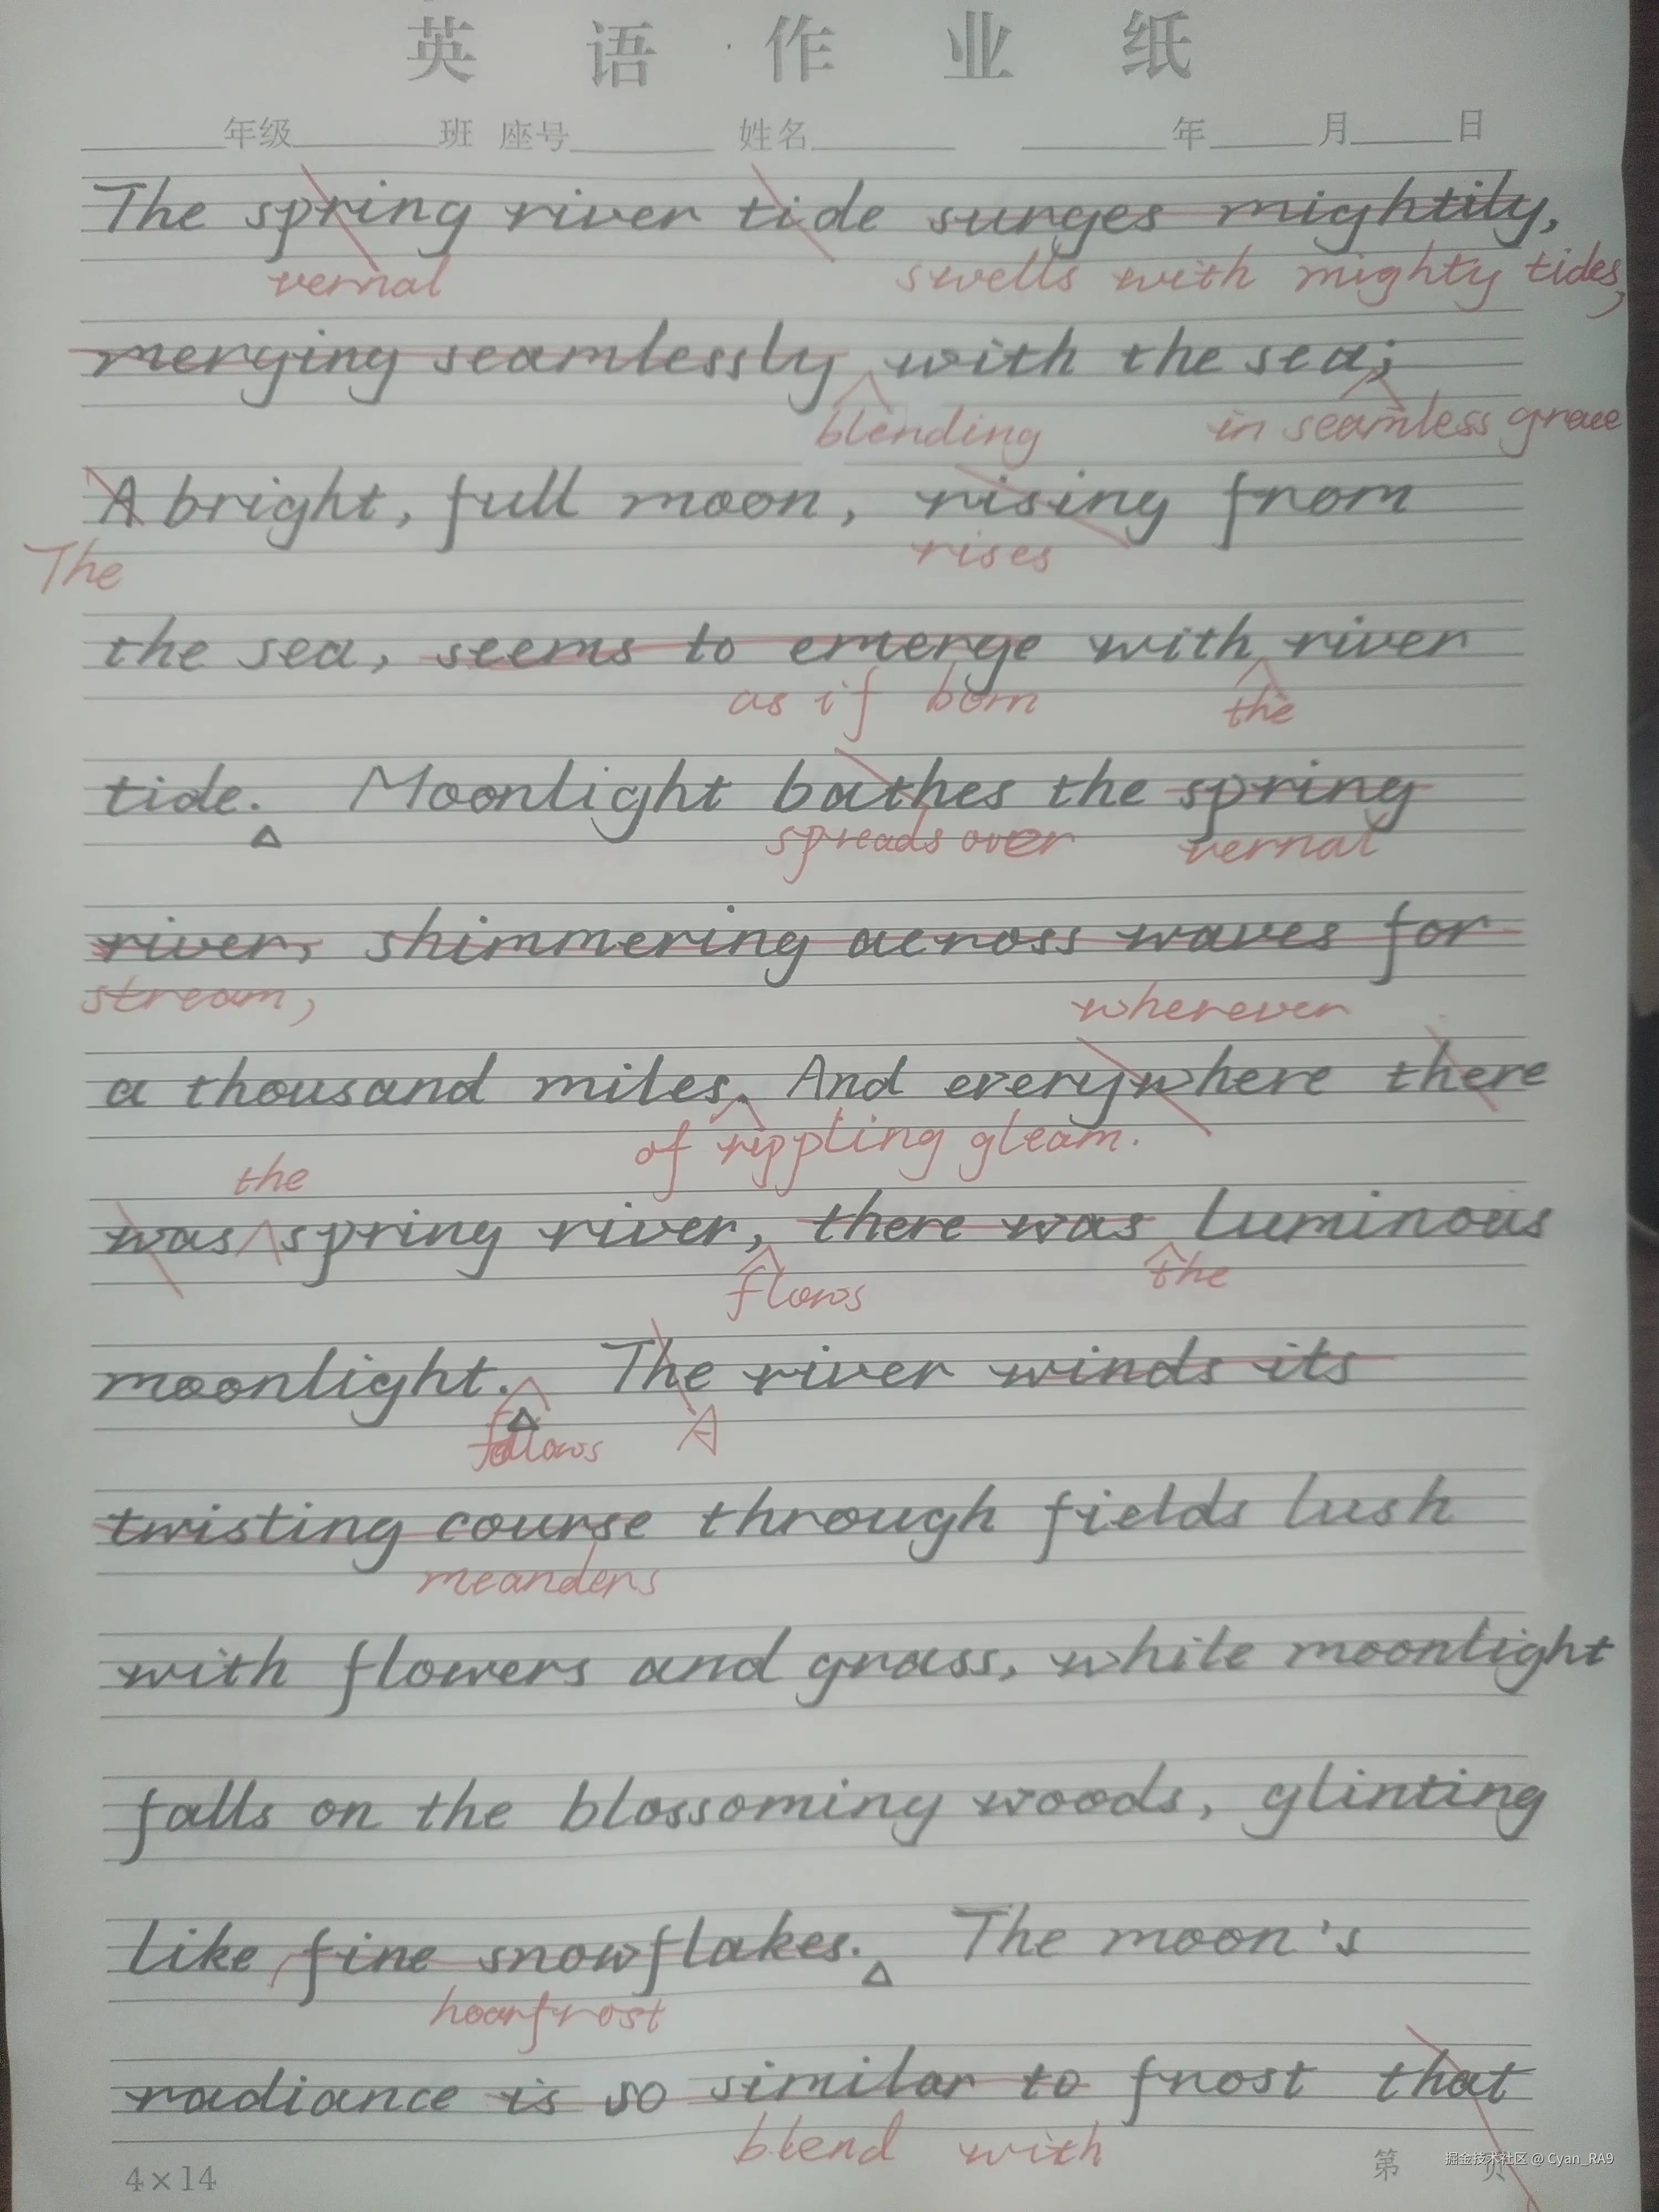 英 语 作 业 纸
年级 班 座号 姓名 年 月 日
The spring river tide surges mightily,
vernal swells with mighty tides,
merging seamlessly with the sea;
blending in seamless grace
A bright, full moon, rising from
The rises
the sea, seems to emerge with river
as if born the
tide. Moonlight bathes the spring
spreads over vernal
river, shimmering across waves for
stream, wherever
a thousand miles. And everywhere there
of rippling gleam.
the
was spring river, there was luminous
flows the
moonlight. The river winds its
follows A
twisting course through fields lush
meanders
with flowers and grass, white moonlight
falls on the blossoming woods, glinting
like fine snowflakes. The moon's
hoarfrost
radiance is so similar to frost that
blend with
4×14 第 页
掘金技术社区 @ Cyan_RA9